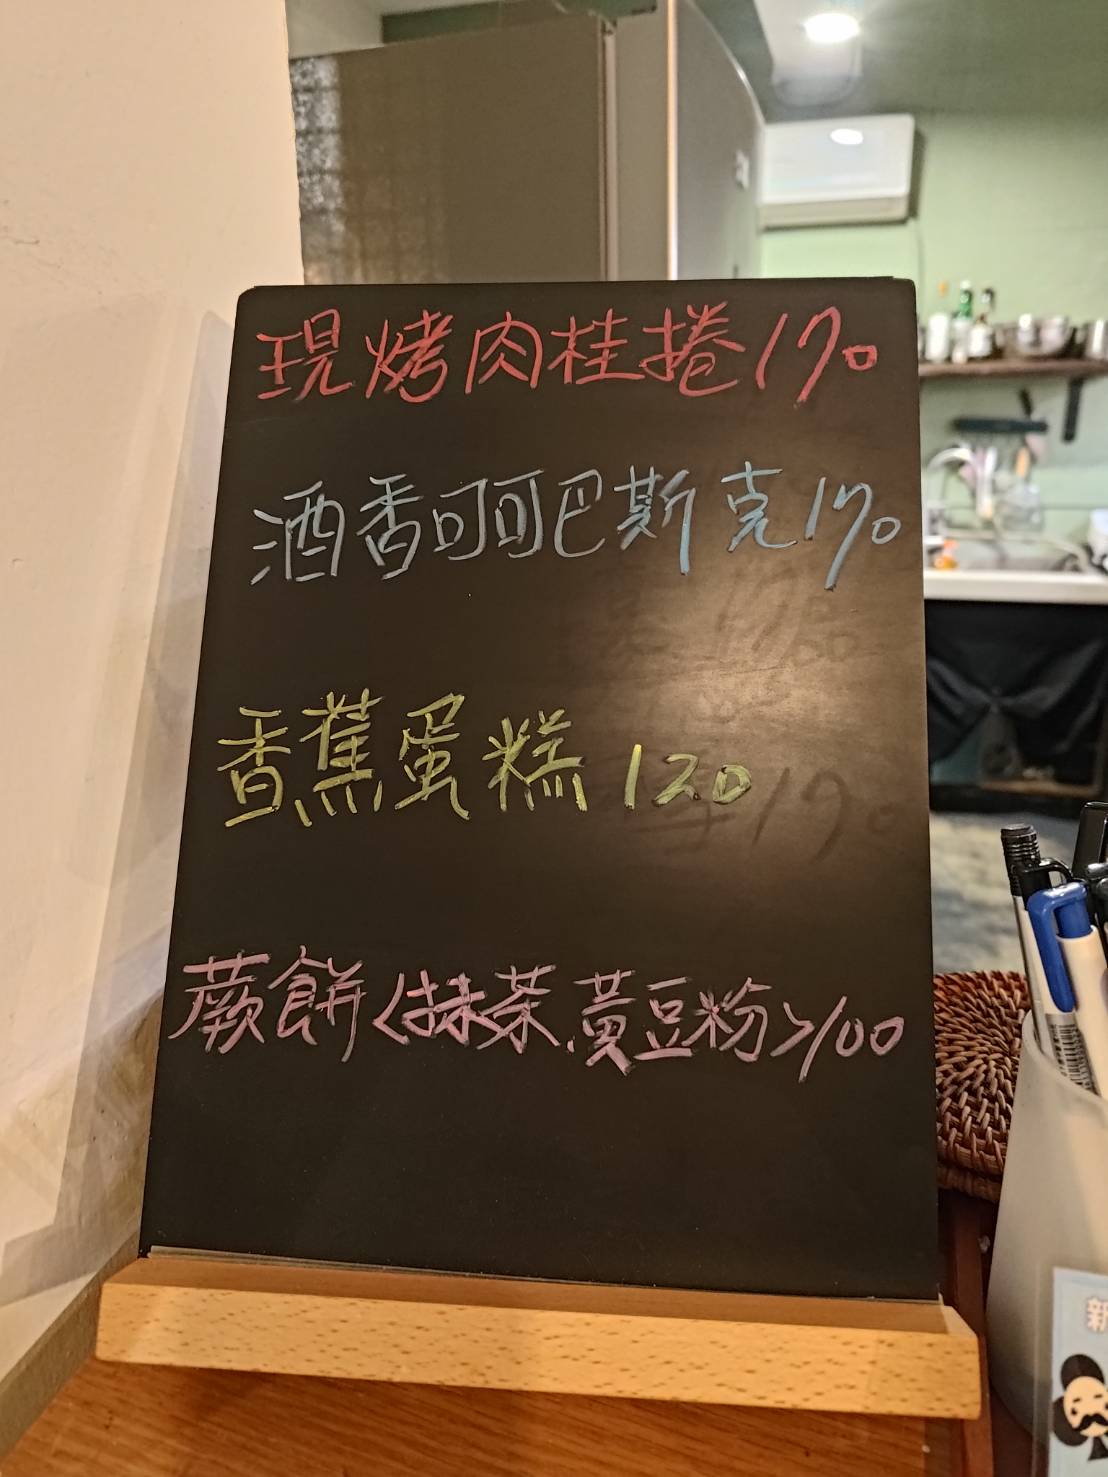 現烤肉桂捲170
酒香可可巴斯克170
香蕉蛋糕 120
蕨餅<抹茶、黃豆粉>100
新